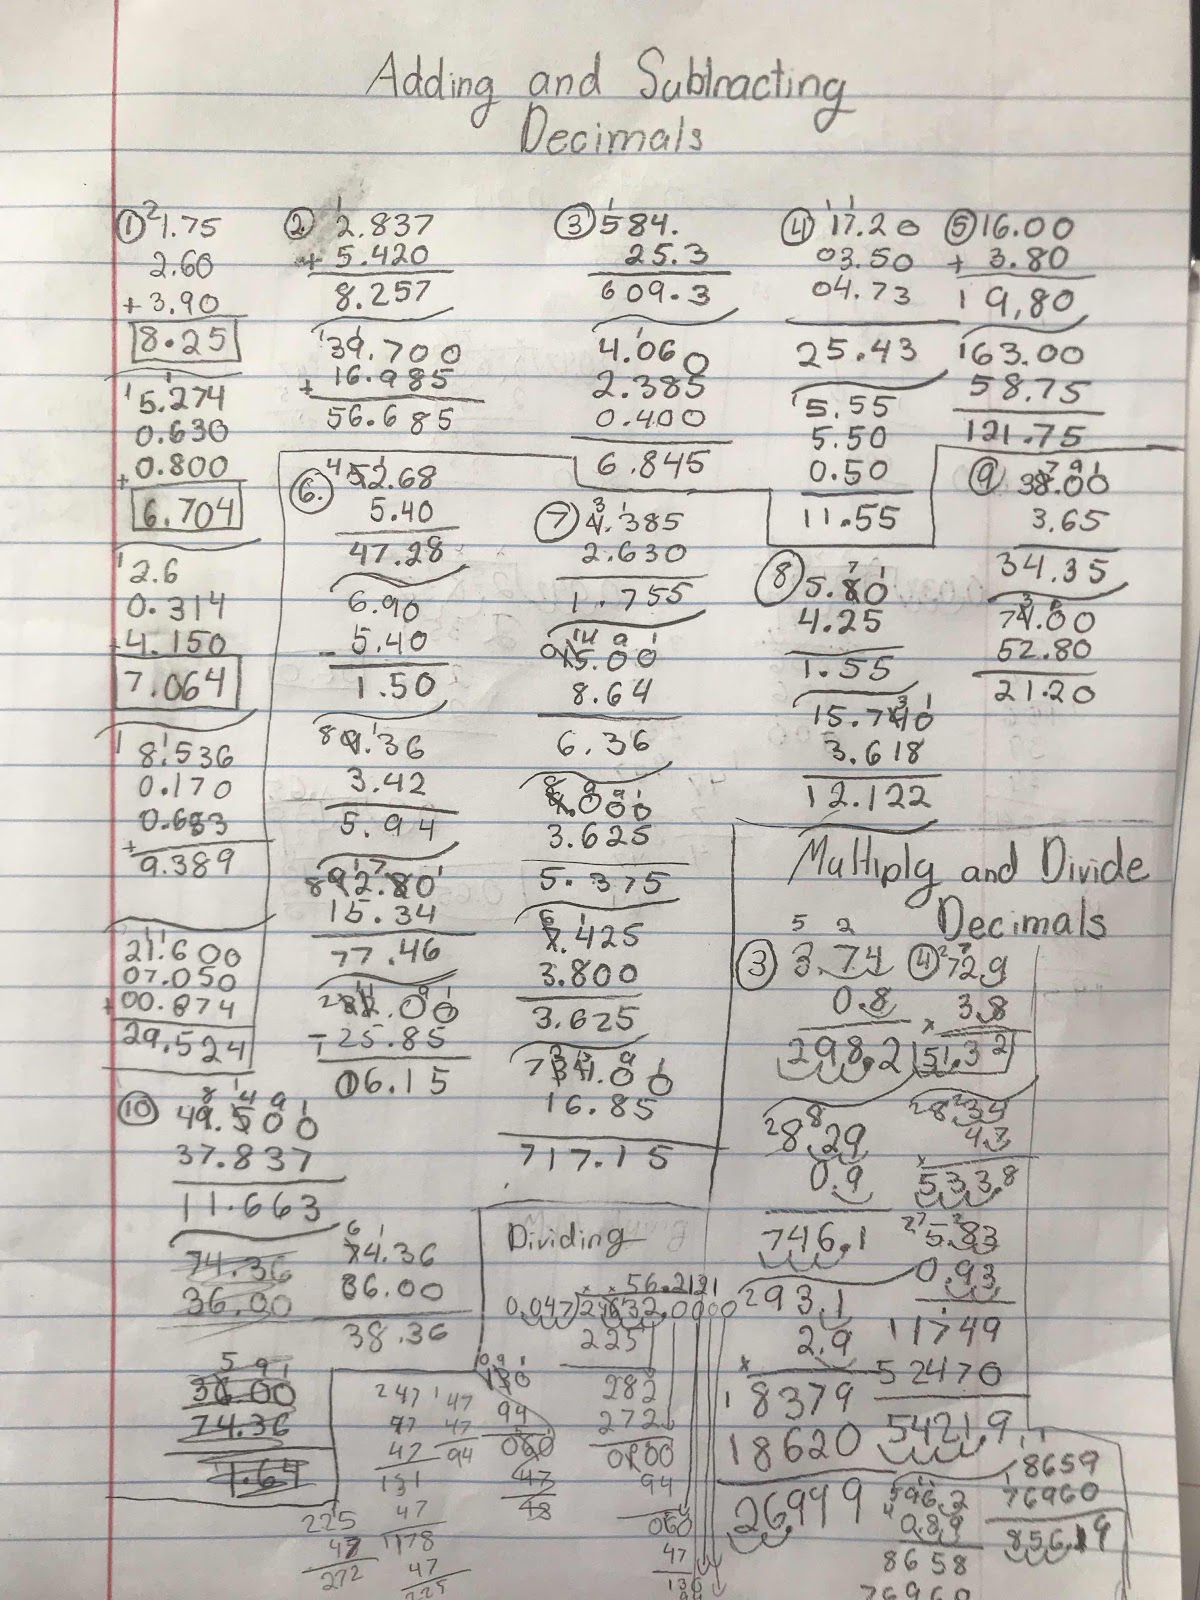 Adding and Subtracting
Decimals
① 1.75
2.60
+ 3.90
8.25
5.274
0.630
+ 0.800
6.704
2.6
0.314
+ 4.150
7.064
8.536
0.170
0.683
+
9.389
21.600
07.050
+ 00.874
29.524
② 2.837
+ 5.420
8.257
39.700
+ 16.985
56.685
③ 584.
25.3
609.3
4.060
2.385
0.400
6.845
④ 17.20
03.50
04.73
25.43
5.55
5.50
0.50
11.55
⑤ 16.00
+ 3.80
19,80
63.00
58.75
121.75
⑥ 52.68
5.40
47.28
6.90
- 5.40
1.50
9.36
3.42
5.94
92.80
15.34
77.46
32.00
- 25.85
06.15
⑦ 4.385
2.630
1.755
15.00
8.64
6.36
9.000
3.625
5.375
7.425
3.800
3.625
734.00
16.85
717.15
⑧ 5.80
4.25
1.55
15.740
3.618
12.122
⑨ 38.00
3.65
34.35
74.00
52.80
21.20
⑩ 49.500
37.837
11.663
74.36
36.00
74.36
36.00
38.36
36.00
74.36
1.64
Dividing
56.2121
0.047 2632.0000
225
282
272
0100
94
060
47
Multiply and Divide
Decimals
③ 3.74
0.8
298.2
8.29
0.9
746.1
93.1
2.9
×
8379
18620
26949
④ 729
× 3.8
51.32
8.34
4.7
×
533.8
5.83
0.93
11749
52470
5421.9
596.2
0.89
8658
76960
8659
76960
856.19
247
47
47
94
47
131
47
178
47
225
225
47
272
94
47